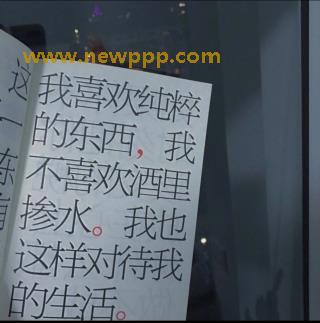 www.newppp.com
我喜欢纯粹
的东西，我
不喜欢酒里
掺水。我也
这样对待我
的生活。